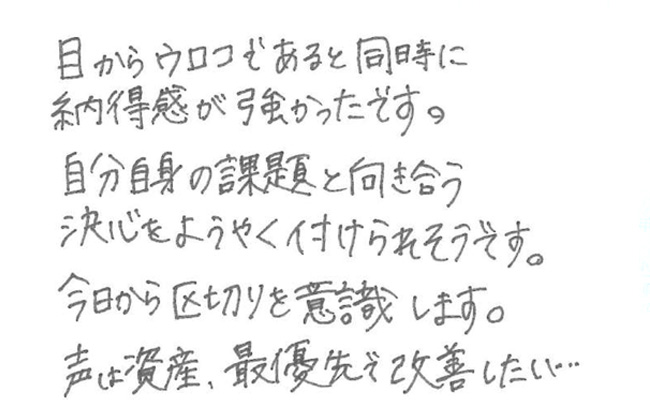 目からウロコであると同時に
納得感が強かったです。
自分自身の課題と向き合う
決心をようやく付けられそうです。
今日から区切りを意識します。
声は資産、最優先で改善したい…